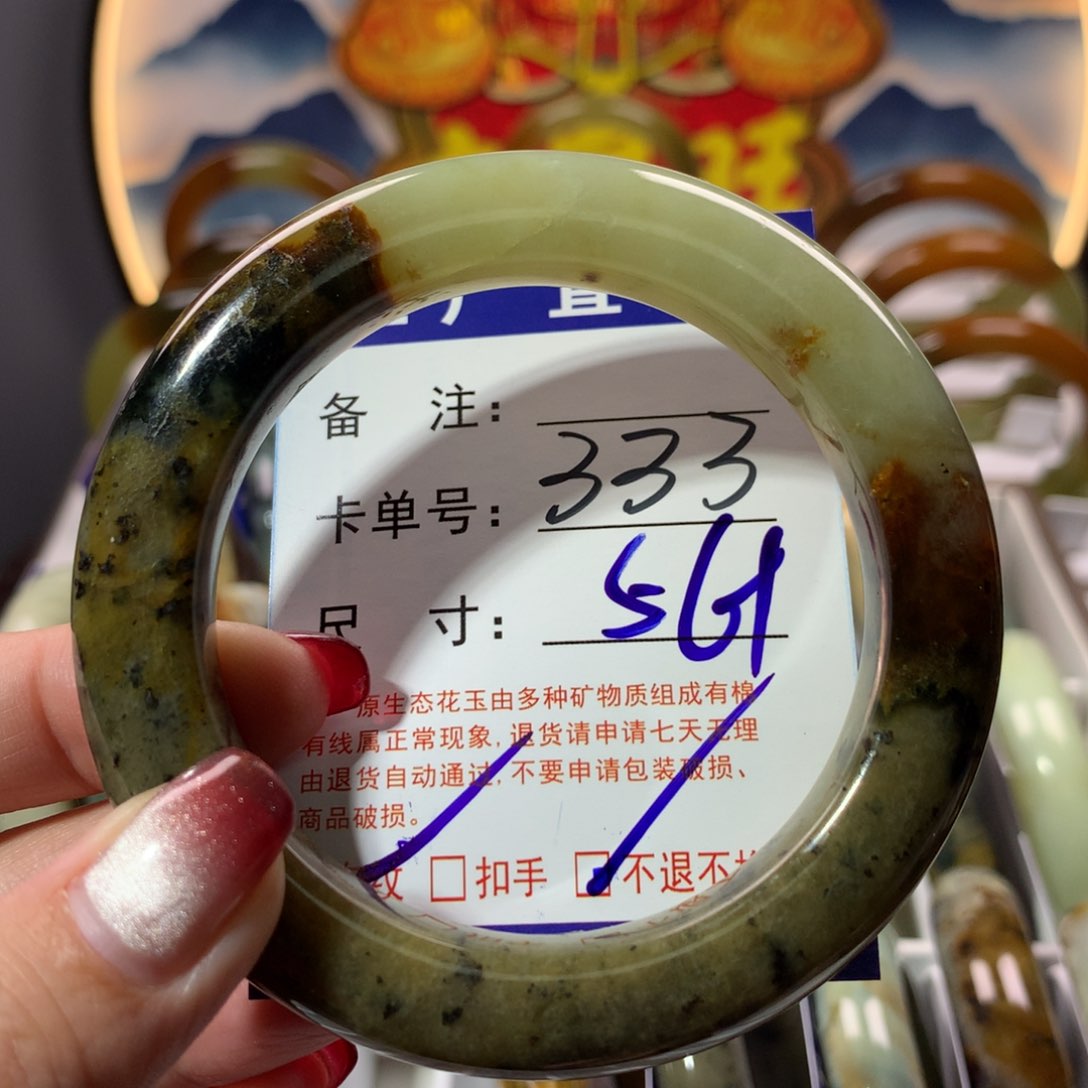 旺
厂 直
备 注:
卡单号: 333
尺 寸:
原生态花玉由多种矿物质组成有棉
有线属正常现象,退货请申请七天无理
由退货自动通过,不要申请包装破损、
商品破损。
纹 □扣手 ☑不退不换